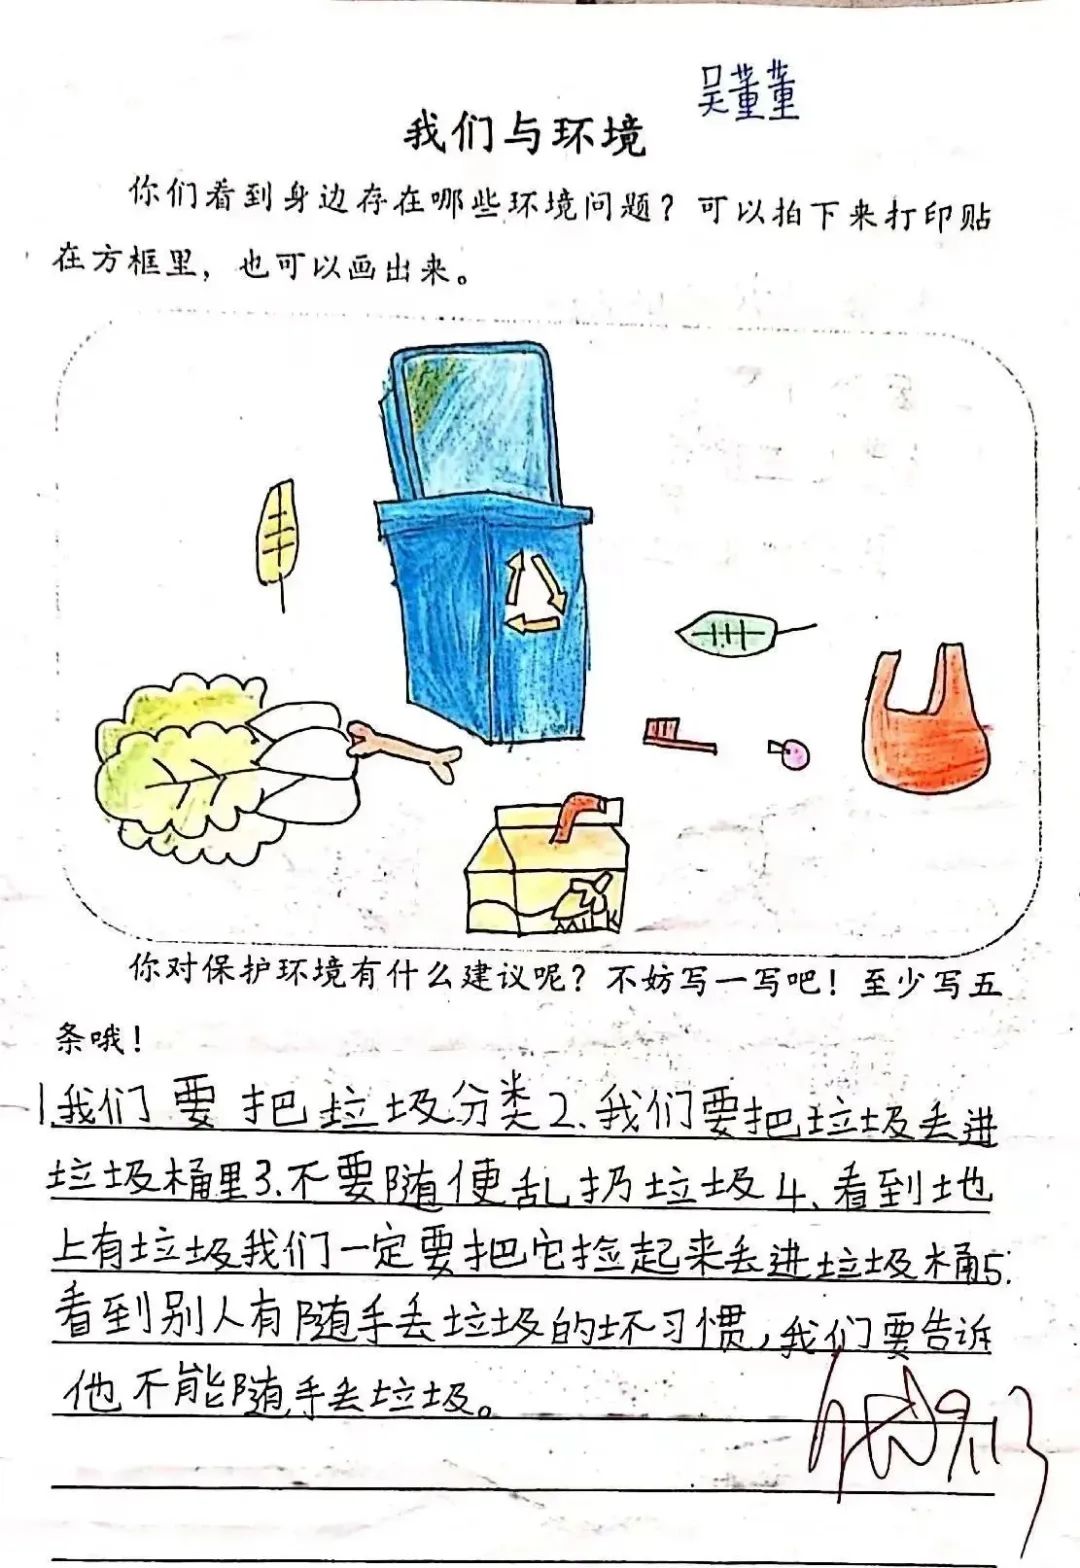 吴董董
我们与环境
你们看到身边存在哪些环境问题？可以拍下来打印贴
在方框里，也可以画出来。
MILK
你对保护环境有什么建议呢？不妨写一写吧！至少写五
条哦！
1.我们要把垃圾分类2.我们要把垃圾丢进
垃圾桶里3.不要随便乱扔垃圾4、看到地
上有垃圾我们一定要把它捡起来丢进垃圾桶5.
看到别人有随手丢垃圾的坏习惯，我们要告诉
他不能随手丢垃圾。